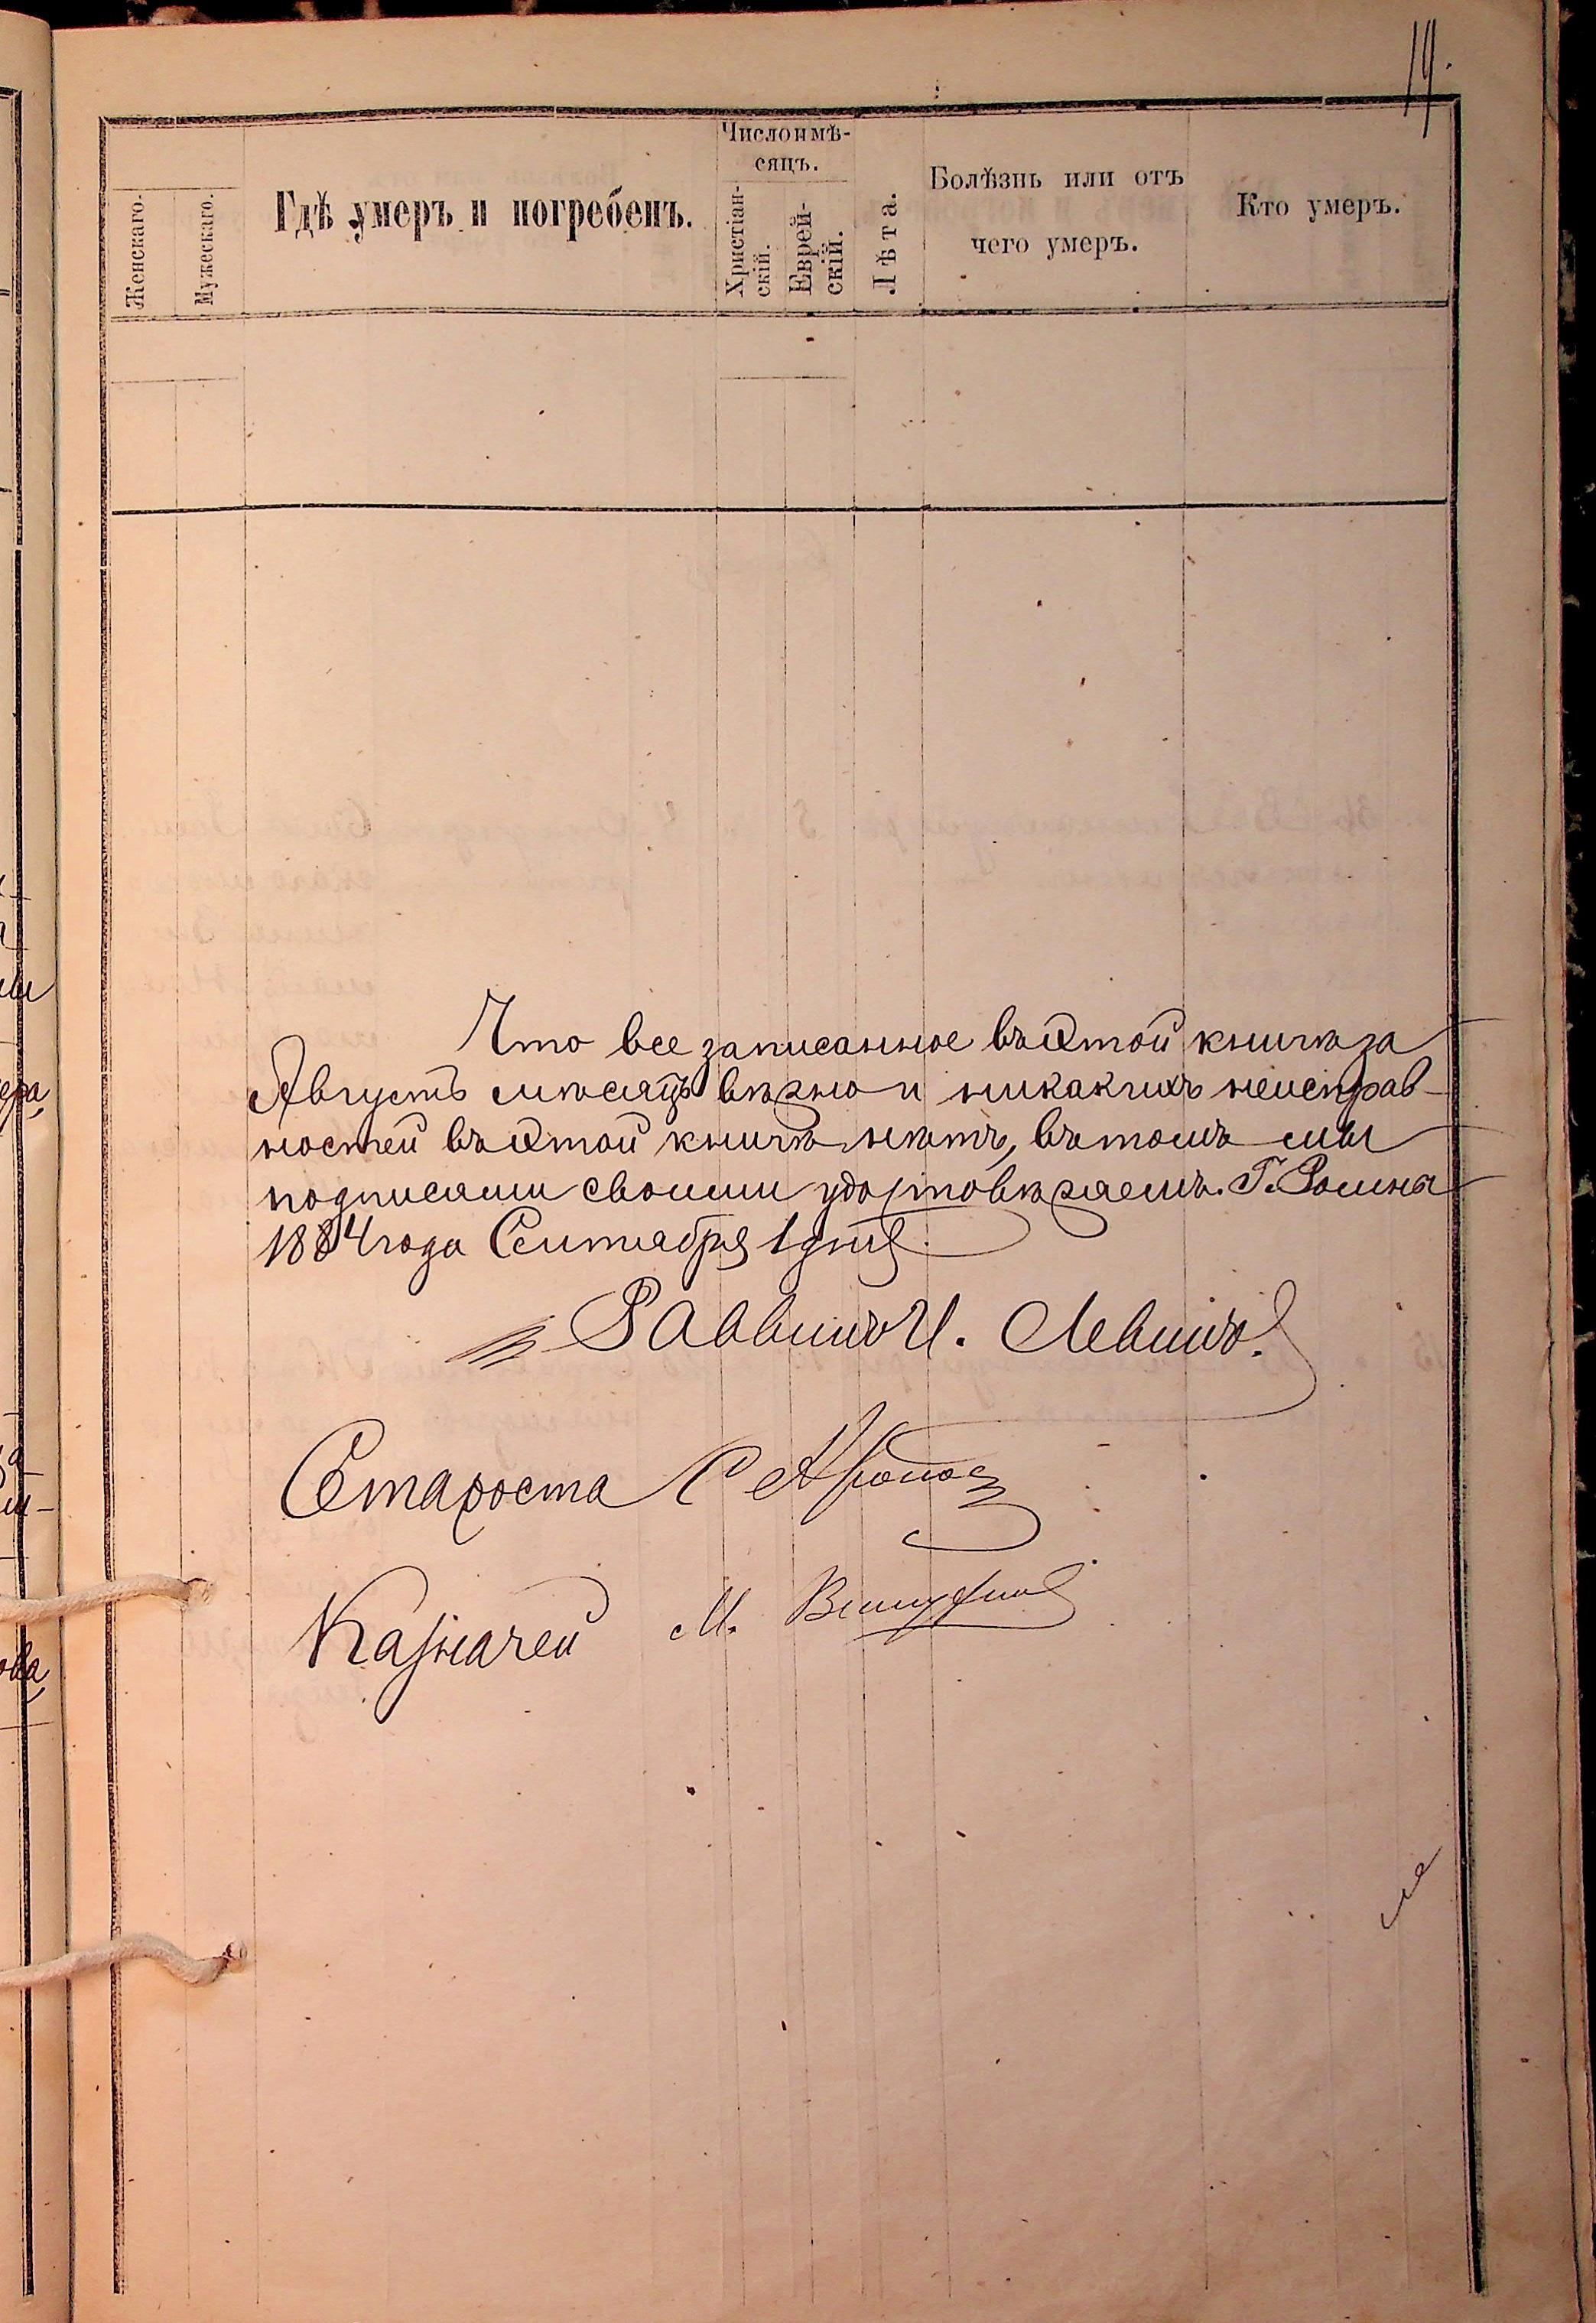 14.
Женскаго.
Мужескаго.
Гдѣ умеръ и погребенъ.
Число и мѣ-
сяцъ.
Христіан-
скій.
Еврей-
скій.
Лѣта.
Болѣзнь или отъ
чего умеръ.
Кто умеръ.
Что все записанное въ этой книгѣ за
Августъ мѣсяцъ вѣрно и никакихъ неисправ-
ностей въ этой книгѣ нѣтъ, въ томъ мы
подписями своими удостовѣряемъ. Г. Ромны
1884 года Сентября 1 дня
Раввинъ И. Левинъ.
Староста С
Казначей М.